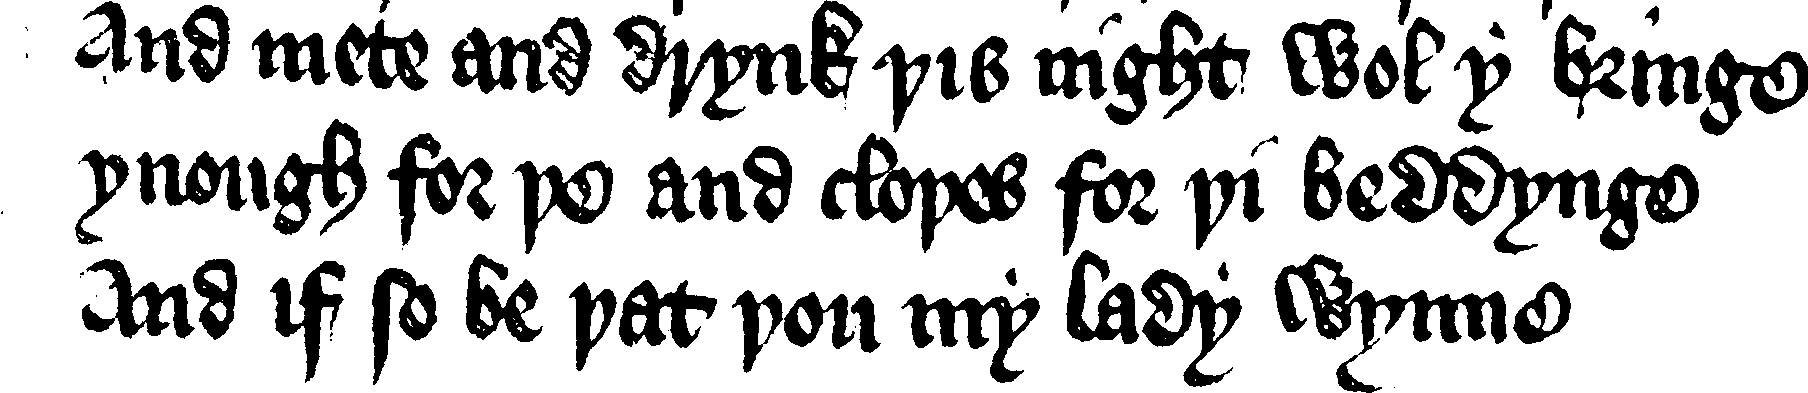 And mete and drynk þis night wol ẏ bringe
ynough for þe and cloþes for þi beddynge
And if so be þat þou mẏ ladẏ wynne